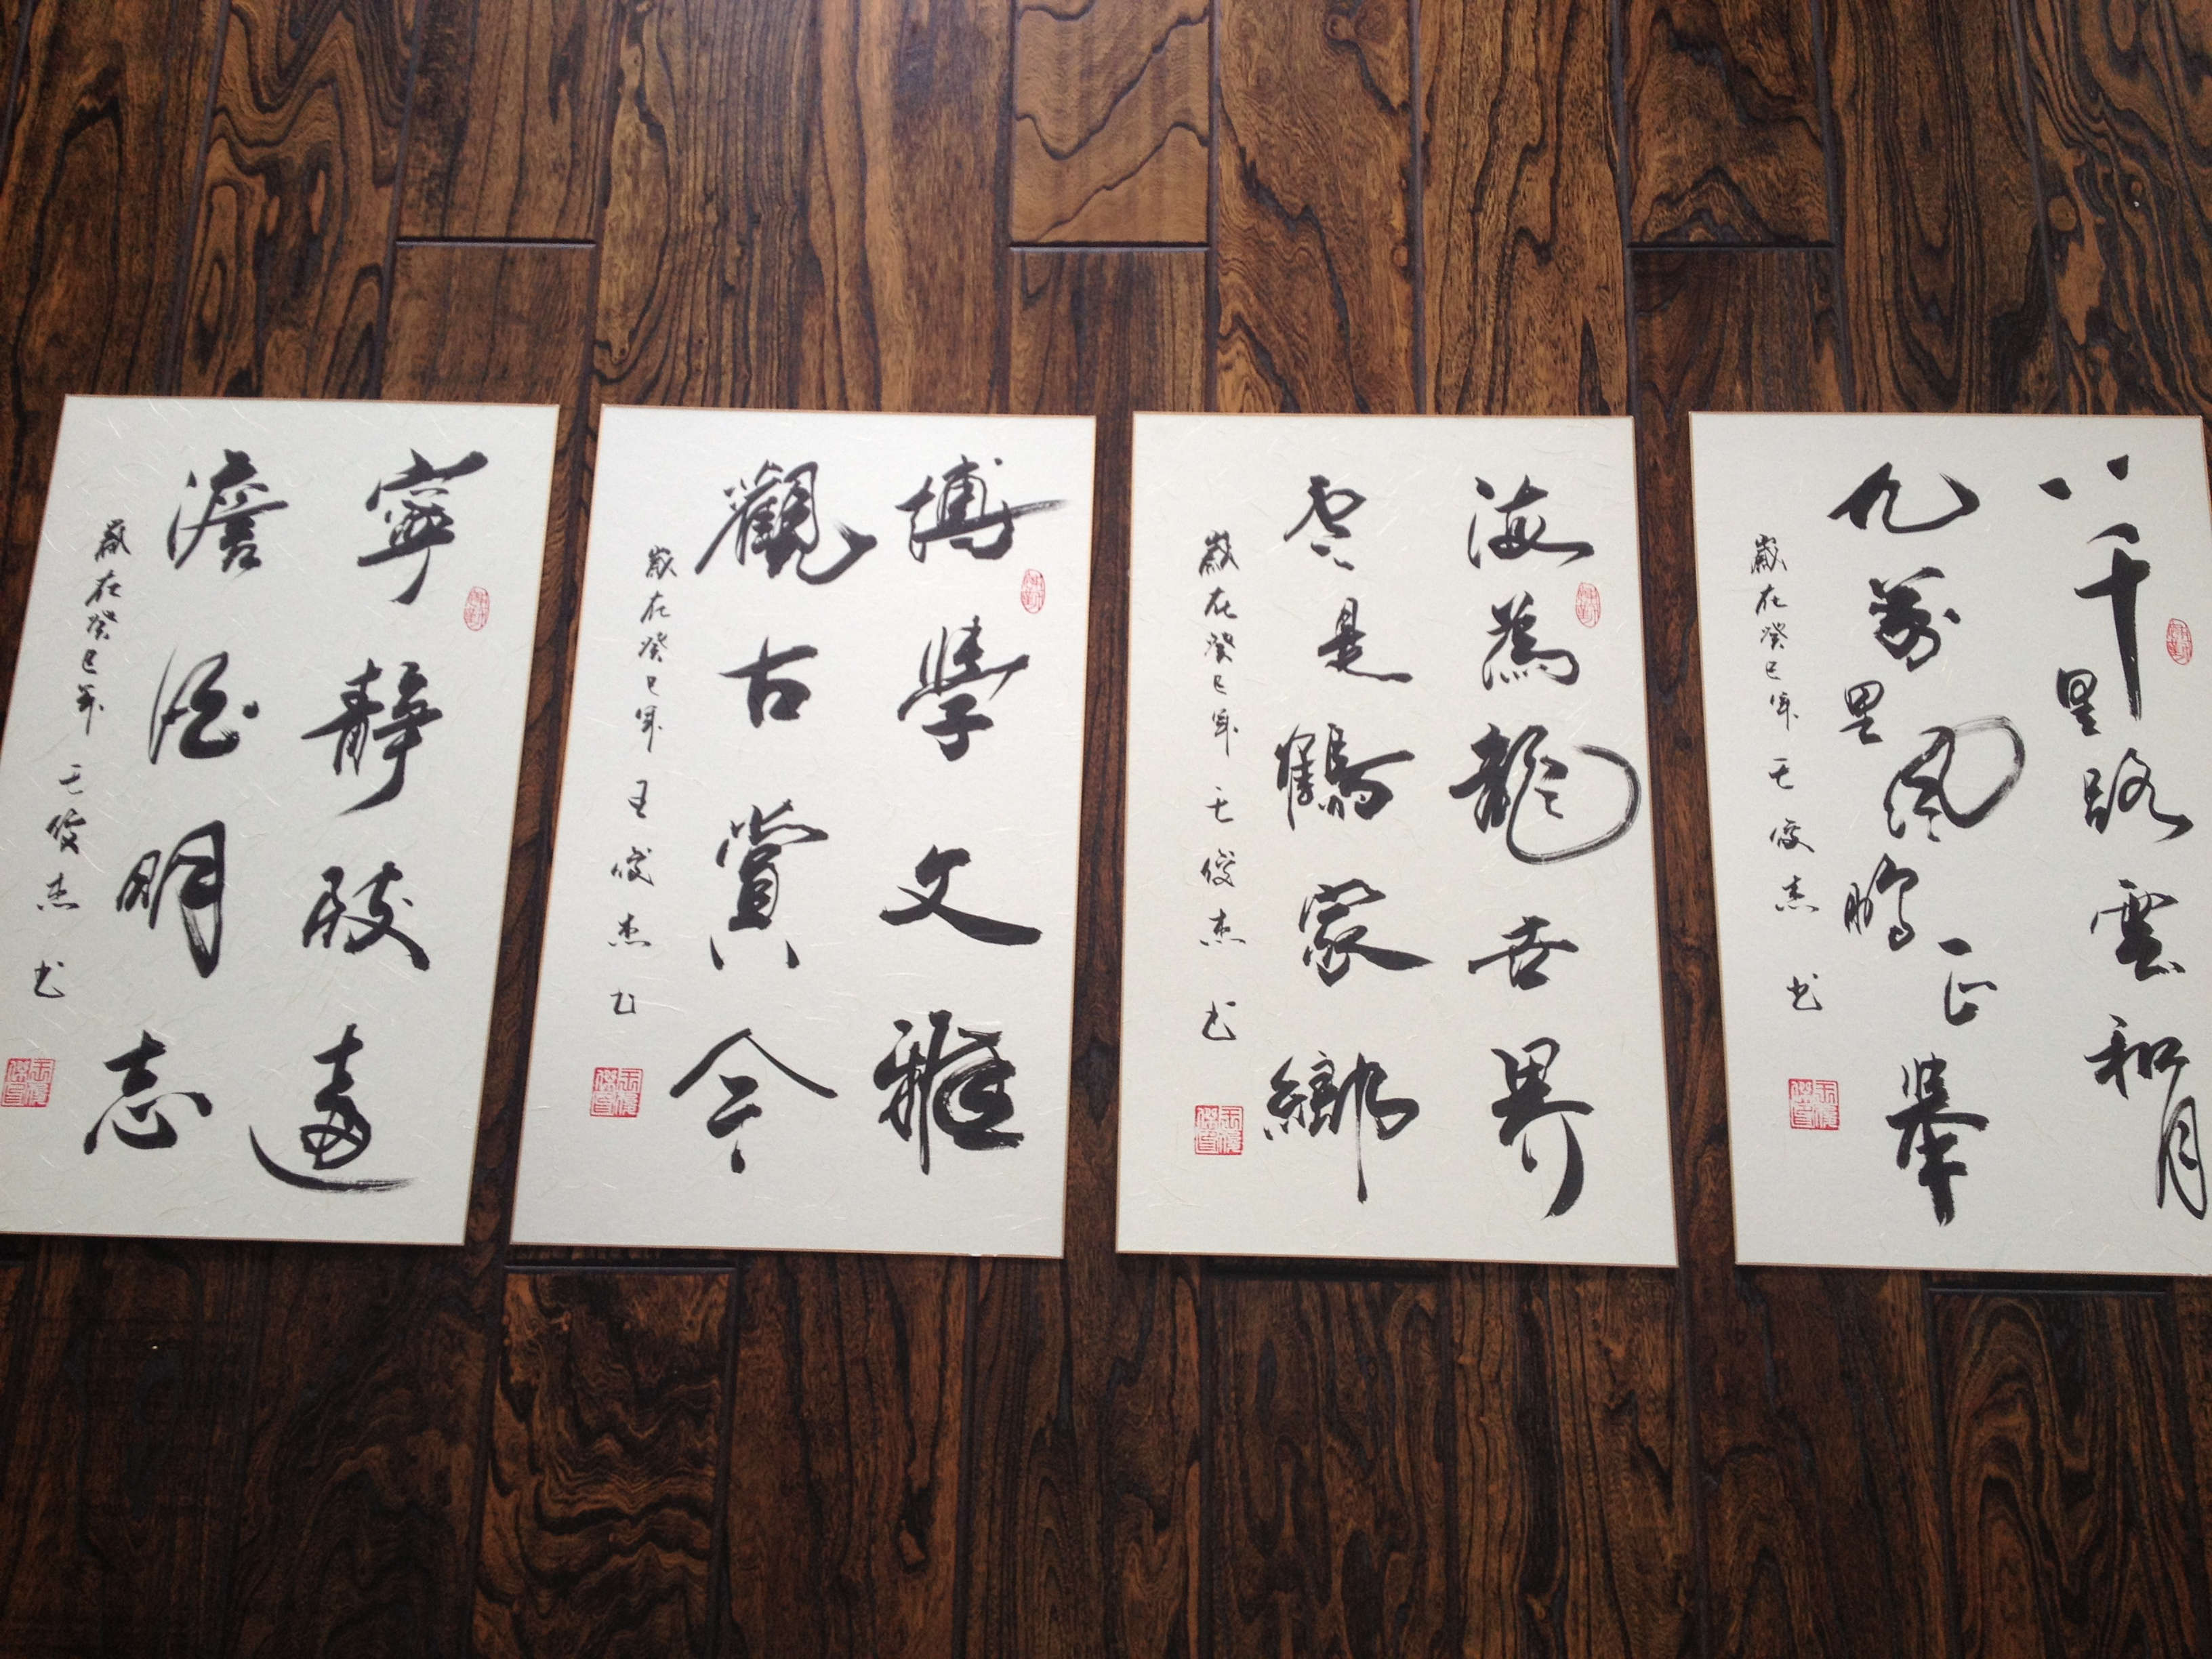 八千里路雲和月
九萬里風鵬正舉
歲在癸巳年王俊杰书
海為龍世界
雲是鶴家鄉
歲在癸巳年王俊杰书
博學文雅
觀古賞今
歲在癸巳年王俊杰书
寧靜致遠
澹泊明志
歲在癸巳年王俊杰书